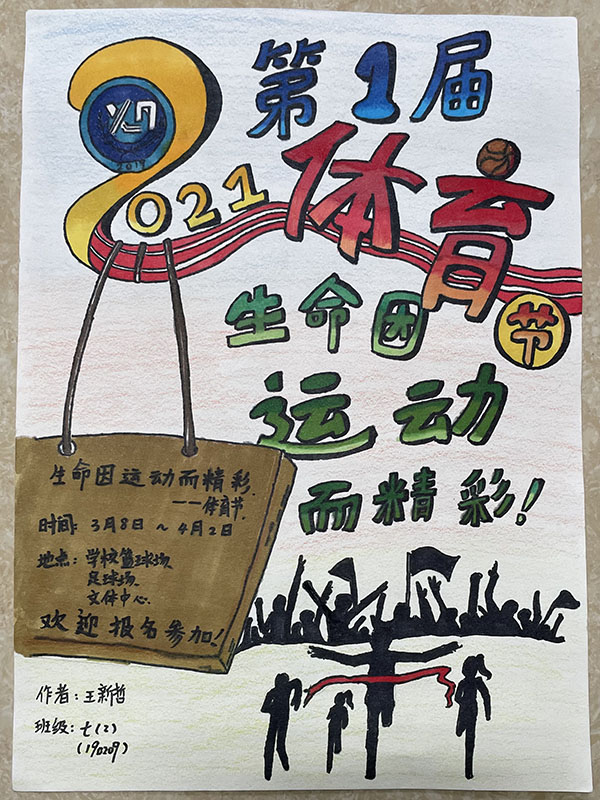 第1届
2021体育节
生命因
运动
而精彩!
YZ
2018
生命因运动而精彩
——体育节
时间:3月8日~4月2日
地点:学校篮球场、
足球场、
文体中心.
欢迎报名参加!
作者:王新哲
班级:七(2)
(190209)